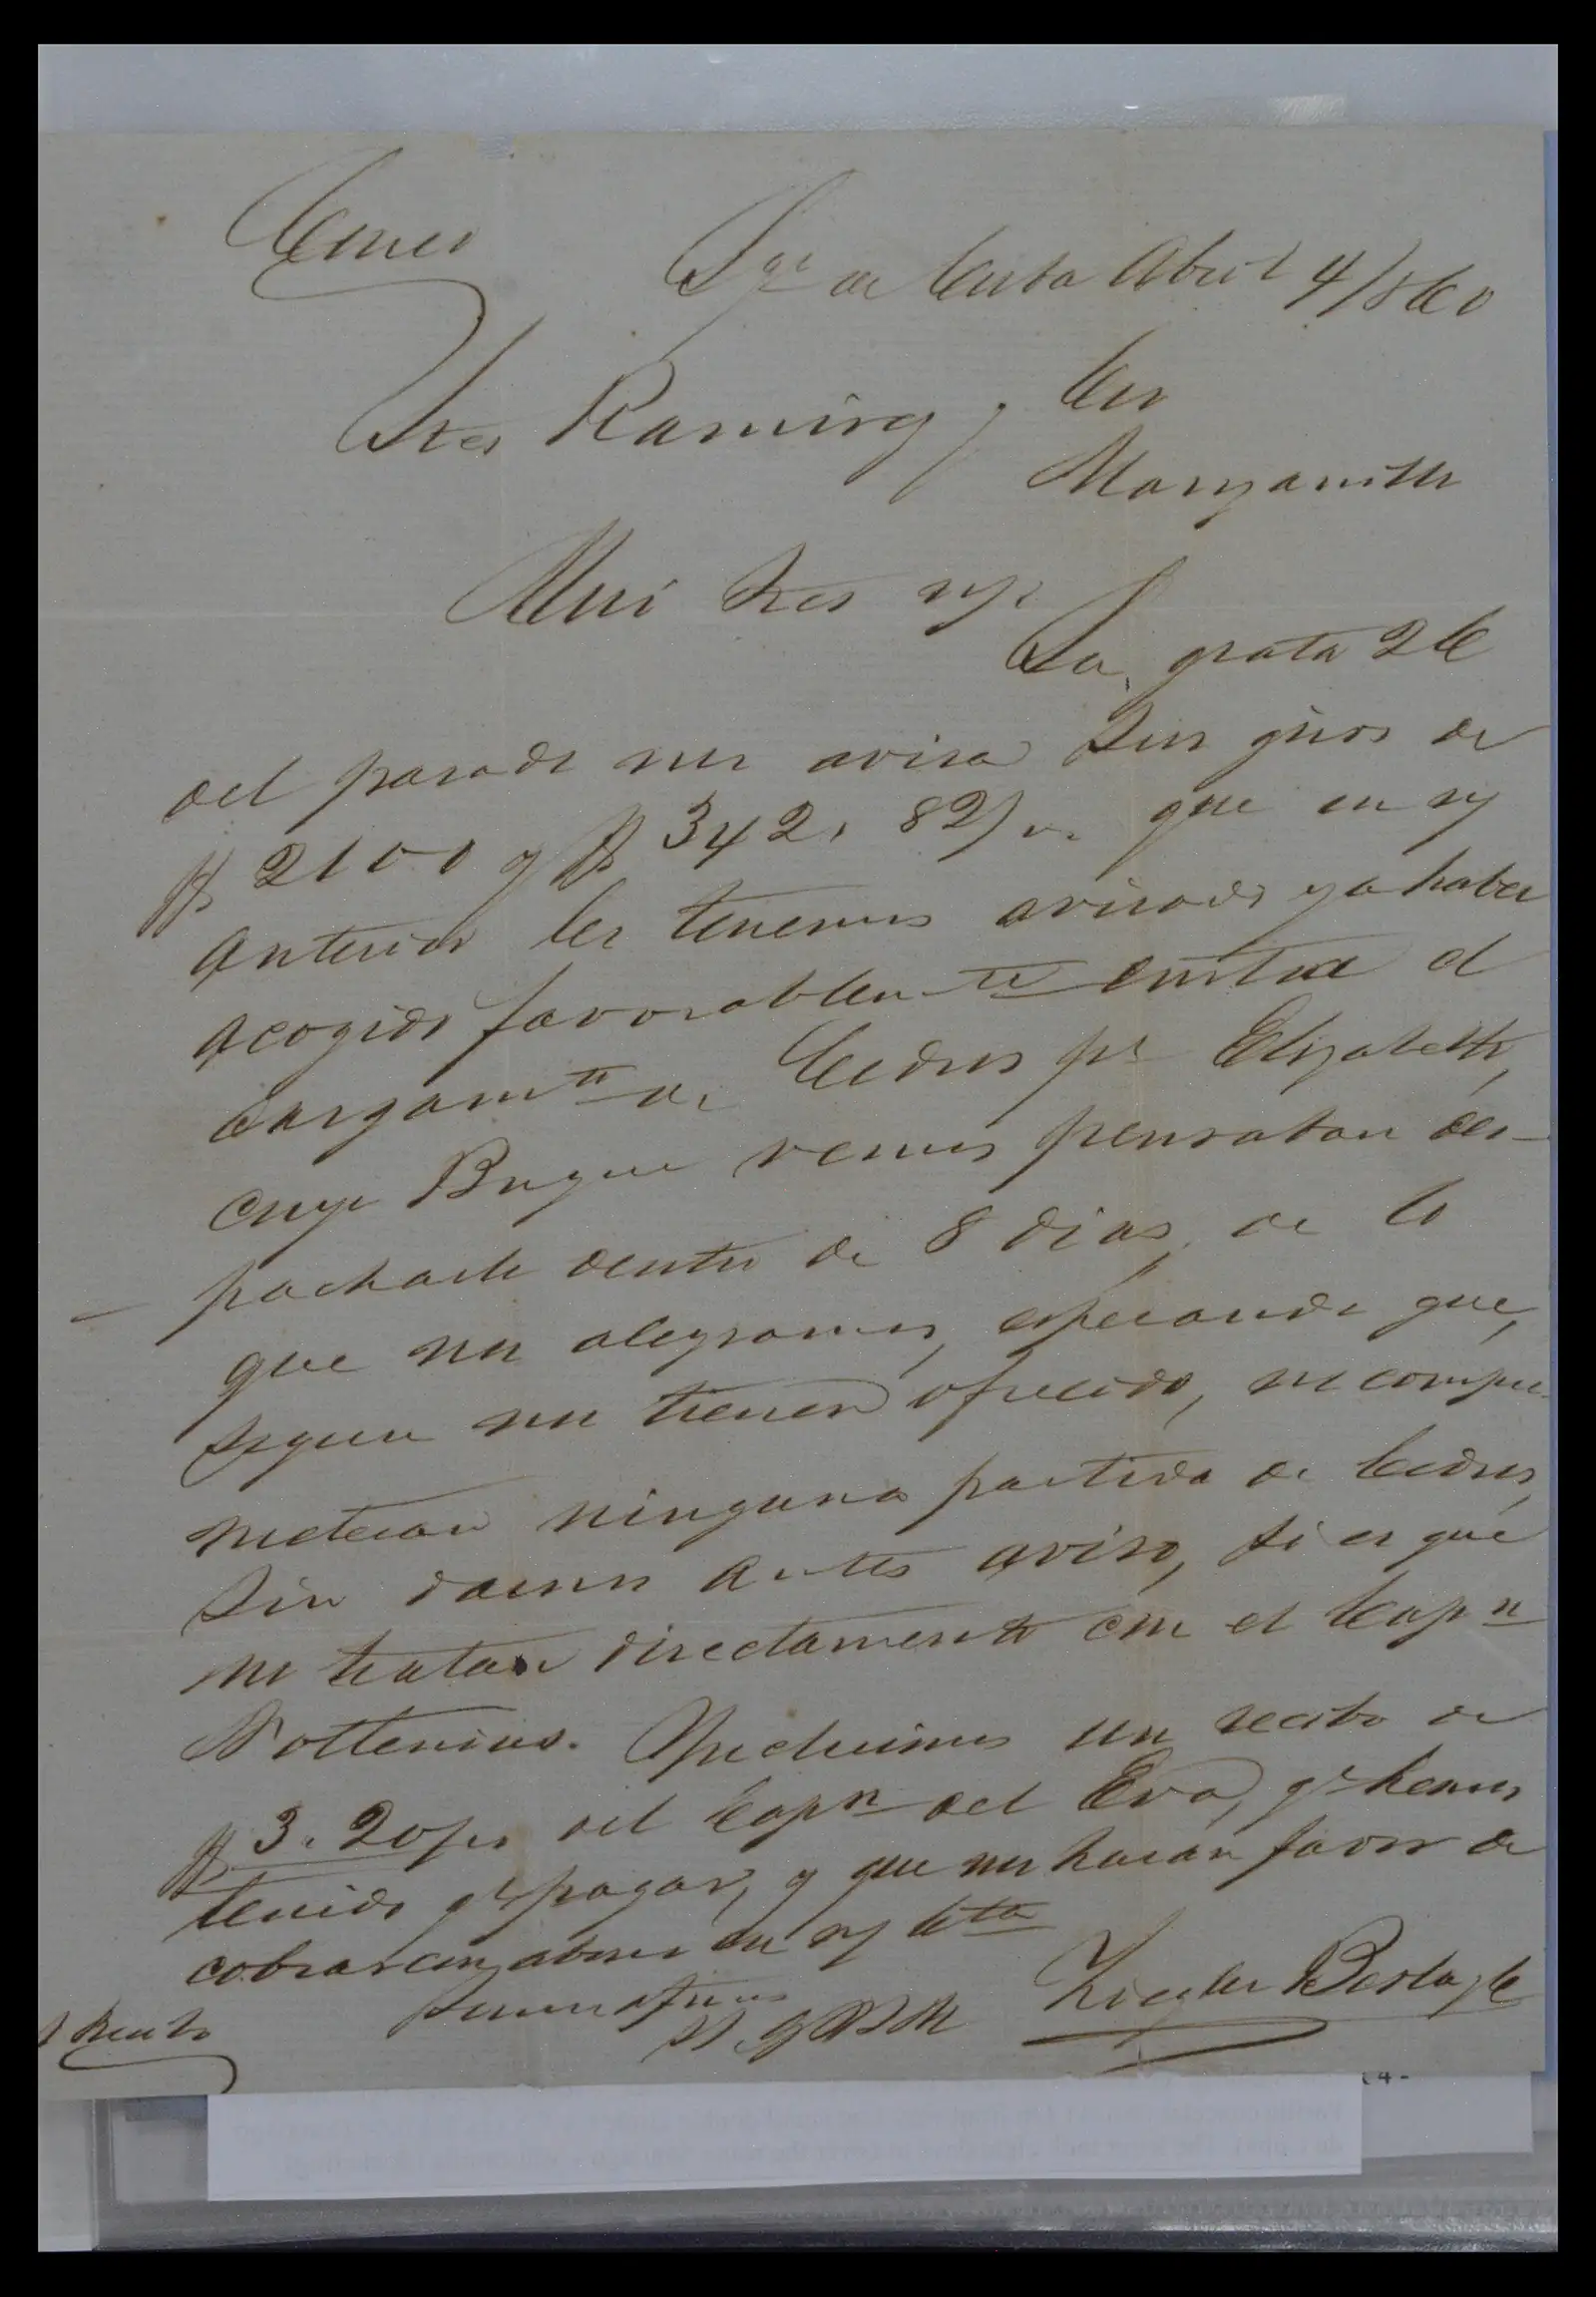 Correo
Sgo de Cuba Abril 4/860
Sres Ramirez y Ca
Manzanillo
Mui Sres ns/
Su grata 26
del pasado nos avisa sus giros de
$ 2100 y $ 342. 82/ que en n/
anterior les tenemos avisado ya haber
acogido favorablemte contra el
cargamto de Cedros pr Elizabeth,
cuyo Buque vemos pensaban des-
pacharle dentro de 8 dias, de lo
que nos alegramos, esperando que,
segun nos tienen ofrecido, no compro-
meteran ninguna partida de Cedros,
sin darnos antes aviso, si es que
no tratan directamente con el Capn
Nottenius. Yncluimos un recibo de
$ 3. 20/ del Capn del Eva, qe hemos
tenido qe pagar, y que nos harán favor de
cobrar con abono en n/ Cta
Somos afmos
S. S. Q B S M